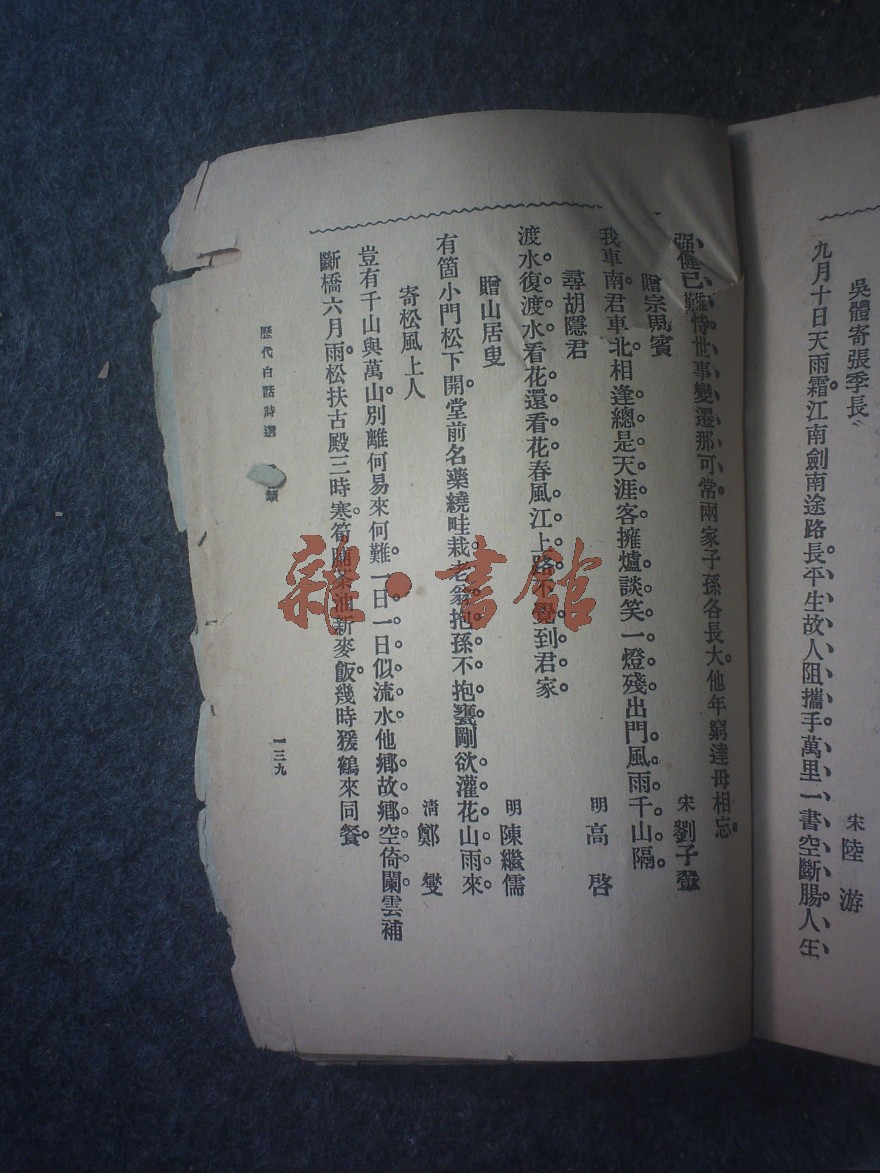 吳體寄張季長
宋 陸 游
九月十日天雨霜。江南劍南途路長。平生故人阻攜手、萬里一書空斷腸。人生
强健已難恃、世事變遷那可常。兩家子孫各長大。他年窮達毋相忘。
贈宗 賓
宋 劉子翬
我車南。君車北。相逢總是天涯客。擁爐談笑一燈殘。出門風雨千山隔。
尋胡隱君
明 高 啓
渡水復渡水。看花還看花。春風江上路。不覺到君家。
贈山居叟
明 陳繼儒
有箇小門松下開。堂前名藥繞畦栽。老翁抱孫不抱甕。剛欲灌花山雨來。
寄松風上人
清 鄭 燮
豈有千山與萬山。別離何易來何難。一日一日似流水。他鄉故鄉空倚闌。雲補
斷橋六月雨。松扶古殿三時寒。筍脯茶油新麥飯。幾時猨鶴來同餐。
歷代白話詩選
類
一三九
雜·書館